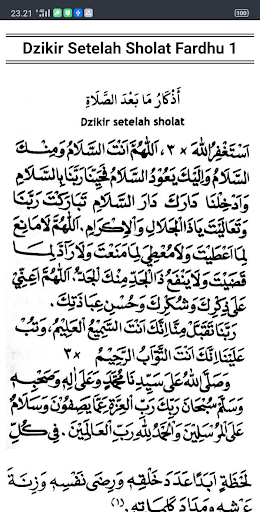 23.21
100
Dzikir Setelah Sholat Fardhu 1
أَذْكَارُ مَا بَعْدَ الصَّلَاةِ
Dzikir setelah sholat
اَسْتَغْفِرُاللهَ ×٣، اَللّٰهُمَّ اَنْتَ السَّلَامُ وَمِنْكَ
السَّلَامُ وَاِلَيْكَ يَعُوْدُ السَّلَامُ فَحَيِّنَا رَبَّنَا بِالسَّلَامِ
وَاَدْخِلْنَا دَارَكَ دَارَ السَّلَامِ تَبَارَكْتَ رَبَّنَا
وَتَعَالَيْتَ يَاذَا الْجَلَالِ وَالْاِكْرَامِ. اَللّٰهُمَّ لَامَانِعَ
لِمَا اَعْطَيْتَ وَلَامُعْطِيَ لِمَا مَنَعْتَ وَلَارَآدَّ لِمَا
قَضَيْتَ وَلَايَنْفَعُ ذَاالْجَدِّ مِنْكَ الْجَدُّ. اَللّٰهُمَّ اَعِنِّيْ
عَلَى ذِكْرِكَ وَشُكْرِكَ وَحُسْنِ عِبَادَتِكَ.
رَبَّنَا تَقَبَّلْ مِنَّا اِنَّكَ اَنْتَ السَّمِيْعُ الْعَلِيْمُ، وَتُبْ
عَلَيْنَا اِنَّكَ اَنْتَ التَّوَّابُ الرَّحِيْمُ ×٣
وَصَلَّى اللهُ عَلَى سَيِّدِنَا مُحَمَّدٍ وَعَلَى اٰلِهِ وَصَحْبِهِ
وَسَلَّمَ سُبْحَانَ رَبِّكَ رَبِّ الْعِزَّةِ عَمَّا يَصِفُوْنَ وَسَلَامٌ
عَلَى الْمُرْسَلِيْنَ وَالْحَمْدُ لِلّٰهِ رَبِّ الْعَالَمِيْنَ. فِي كُلِّ
لَحْظَةٍ اَبَدًا عَدَدَ خَلْقِهِ وَرِضَى نَفْسِهِ وَزِنَةَ
عَرْشِهِ وَمِدَادَ كَلِمَاتِهِ. (١)